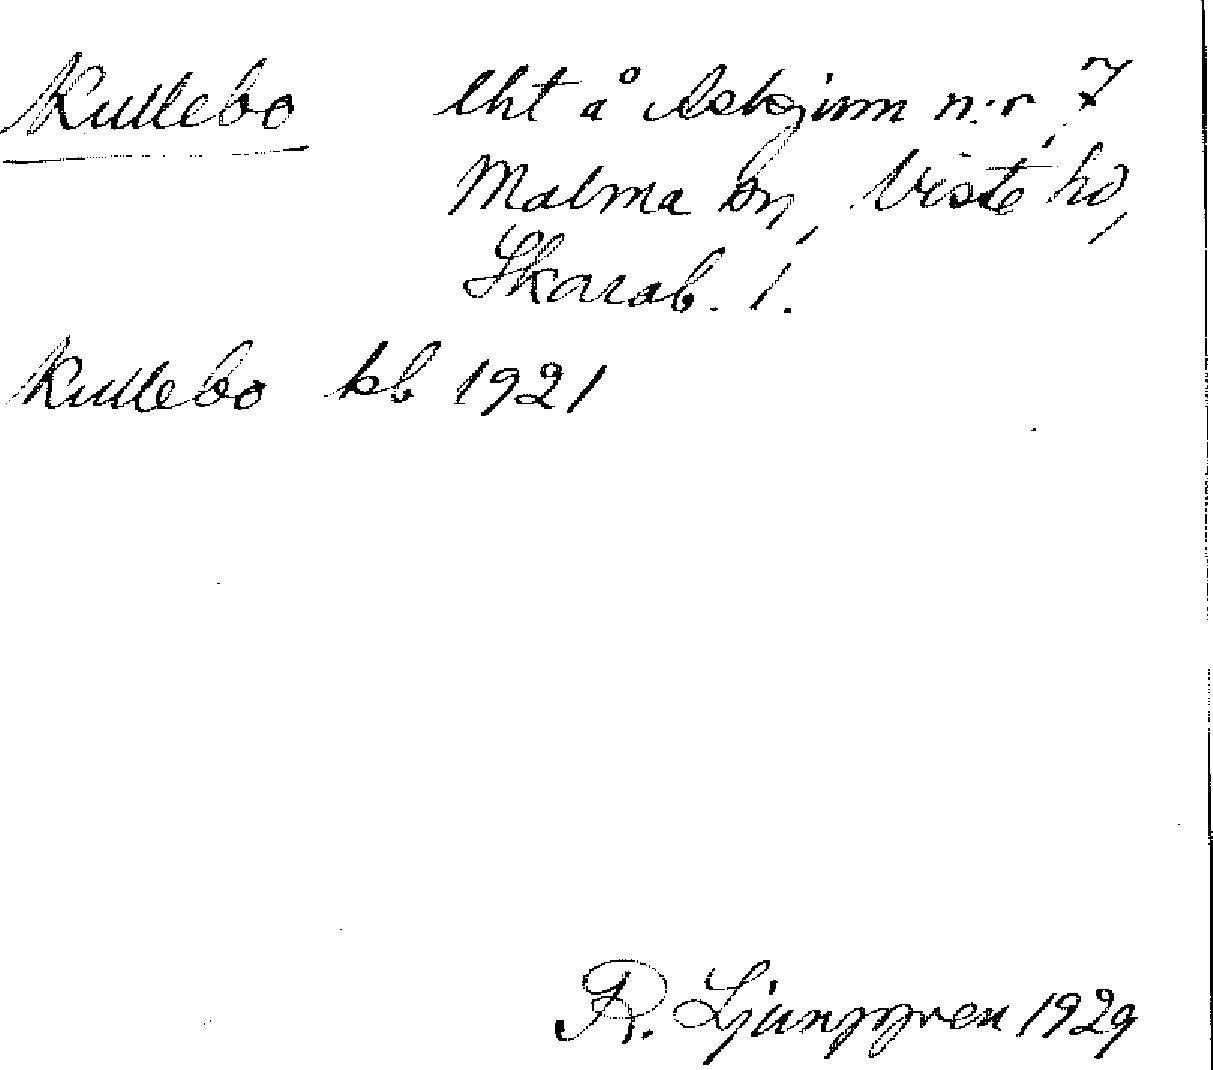 Kullebo lht å Asbginm n:r 7,
Malma sn, Viste hd,
Skarab. l.
Kullebo kb 1921
R. Ljunggren 1929